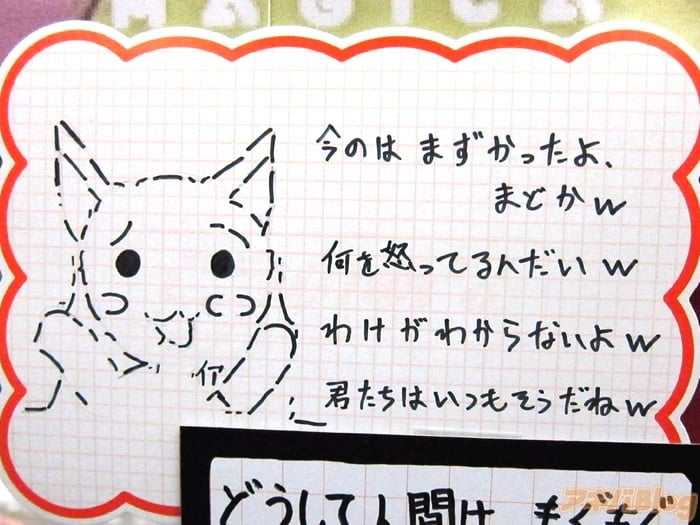 MAGICA
今のは まずかったよ、
まどかw
何を怒ってるんだいw
わけがわからないよw
君たちはいつもそうだねw
どうして人間は
アキバBlog